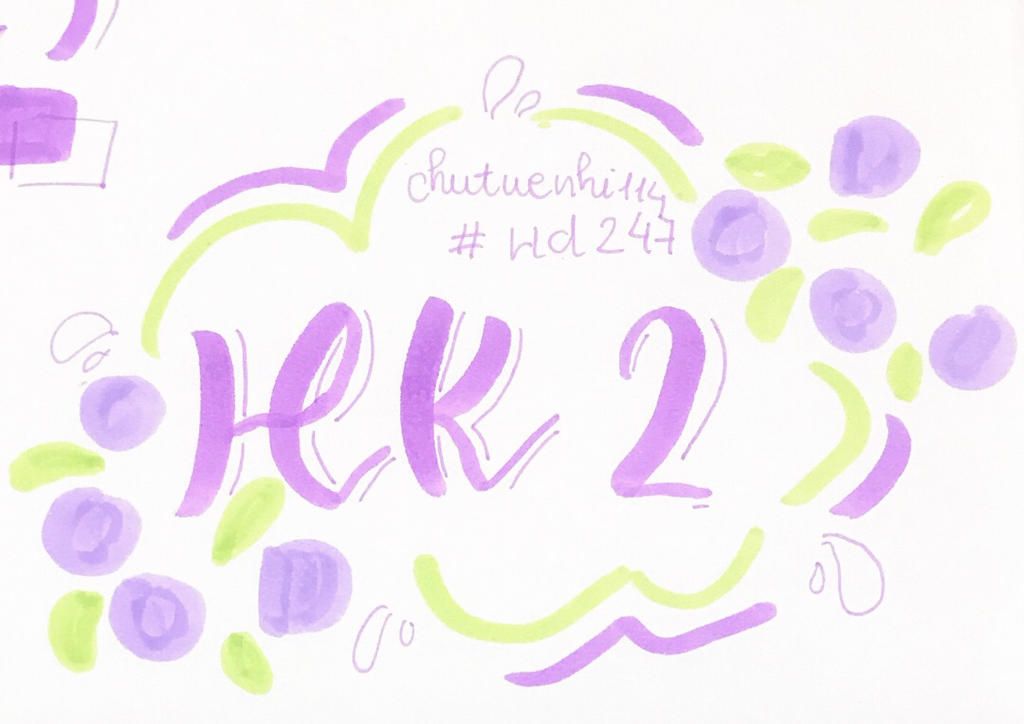 chutuenhi11y
# nd 247
HK 2